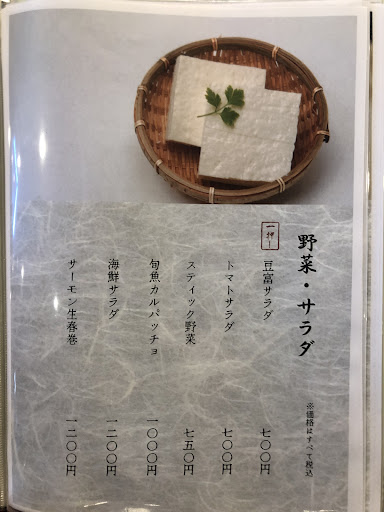 野菜・サラダ
※価格はすべて税込
一押し
豆富サラダ 七〇〇円
トマトサラダ 七〇〇円
スティック野菜 七五〇円
旬魚カルパッチョ 一〇〇〇円
海鮮サラダ 一二〇〇円
サーモン生春巻 一二〇〇円